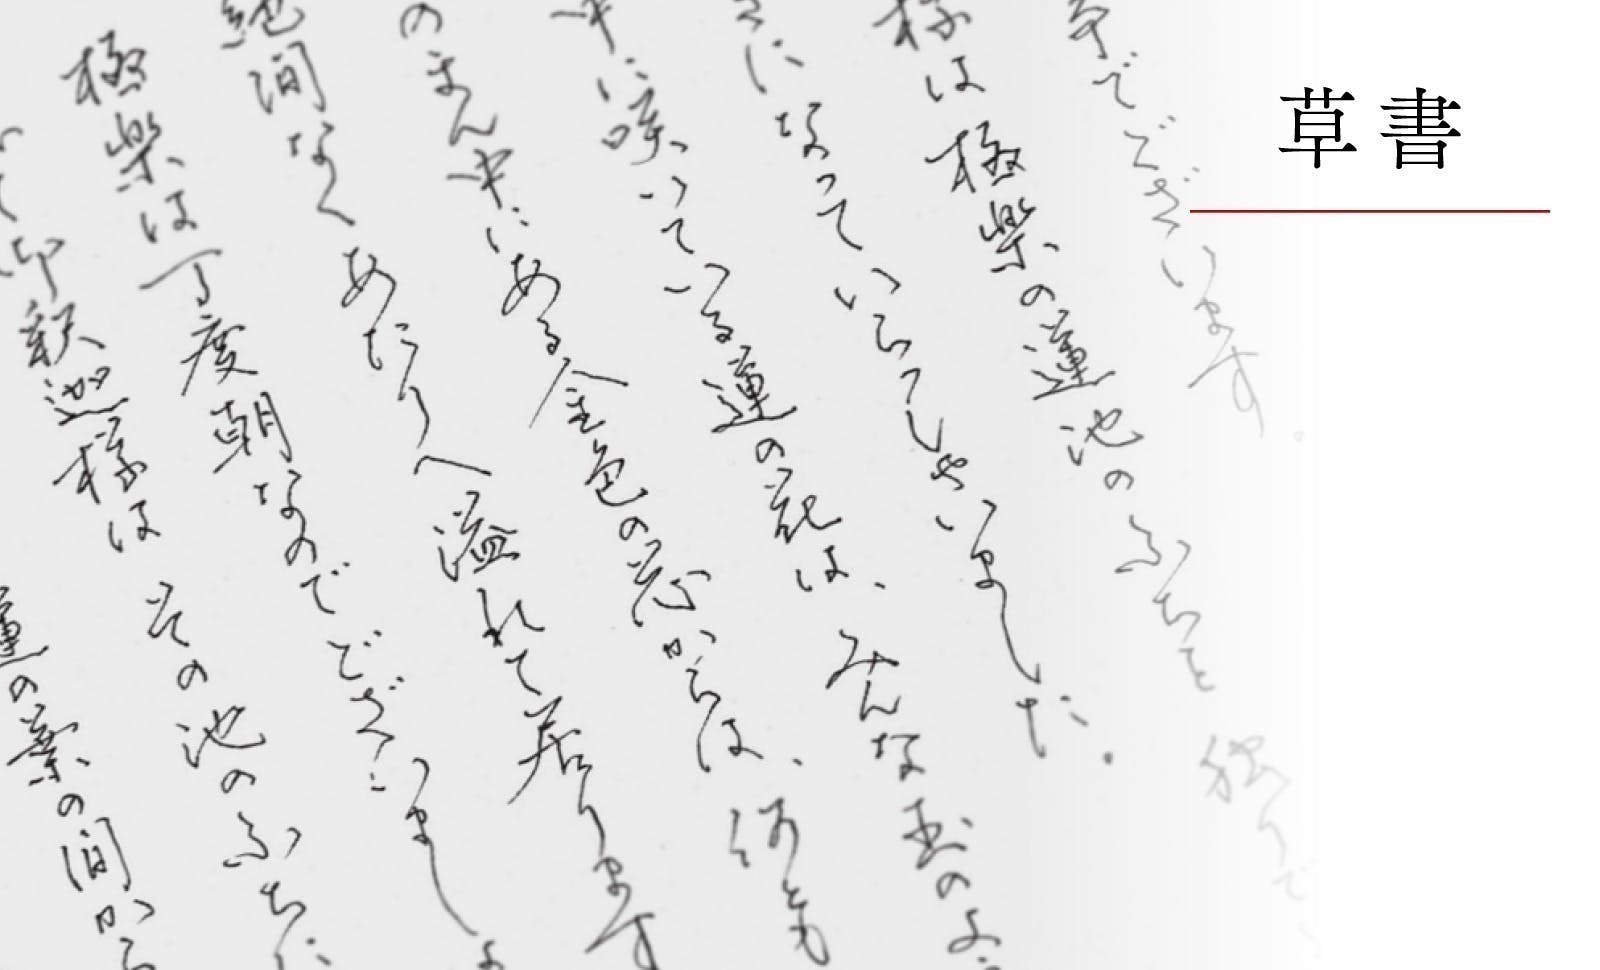 草書
事でございます。独りで
様は極楽の蓮池のふちを
きになっていらっしゃいました。
中に咲いている蓮の花は、みんな玉のよ
のまん中にある金色の蕊からは、何とも
絶間なくあたりへ溢れて居ります
極楽は丁度朝なのでございましょ
御釈迦様はその池のふちに
蓮の葉の間から